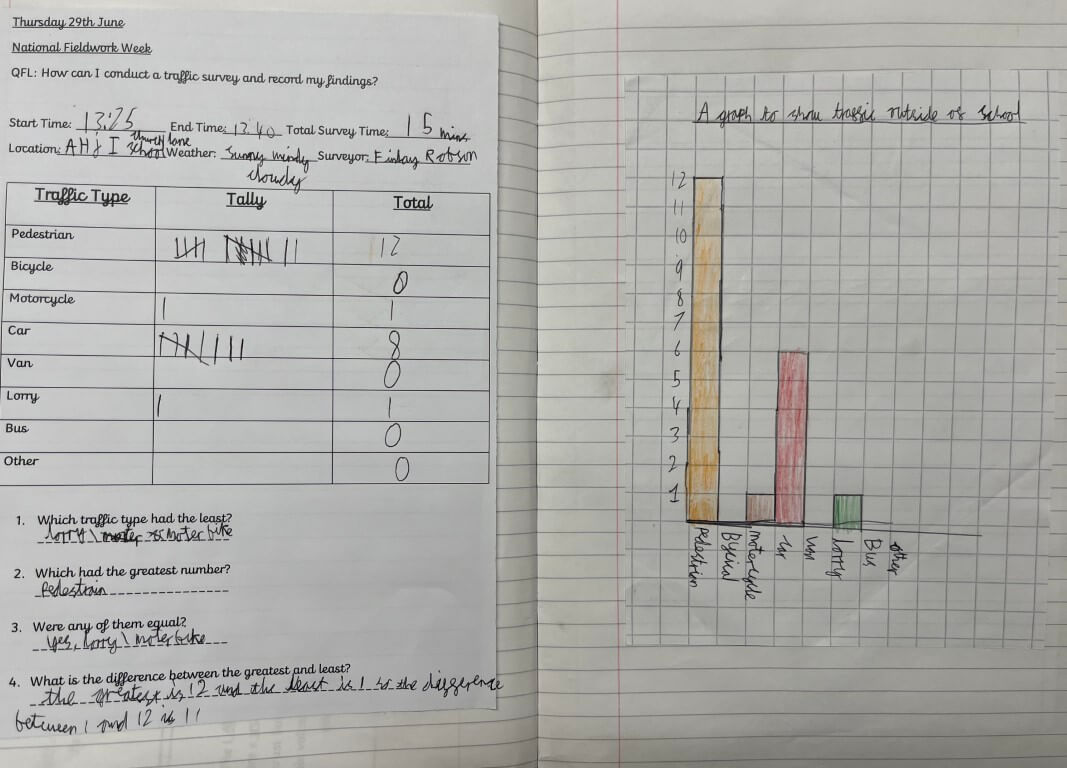 Thursday 29th June
National Fieldwork Week
QFL: How can I conduct a traffic survey and record my findings?
Start Time: 13:25 End Time: 13.40 Total Survey Time: 15 mins
Location: AH & I school church lane Weather: Sunny windy cloudy Surveyor: Finlay Robson
Traffic Type Tally Total
Pedestrian 12
Bicycle 0
Motorcycle 1
Car 8
Van 0
Lorry 1
Bus 0
Other 0
1. Which traffic type had the least?
lorry \ moter bike
2. Which had the greatest number?
Pedestrain
3. Were any of them equal?
yes, lorry \ moter bike
4. What is the difference between the greatest and least?
the greatest is 12 and the least is 1 so the difference
between 1 and 12 is 11
A graph to show traffic outside of school
12
11
10
9
8
7
6
5
4
3
2
1
pedestrian
motercycle
car
van
lorry
Bus
other